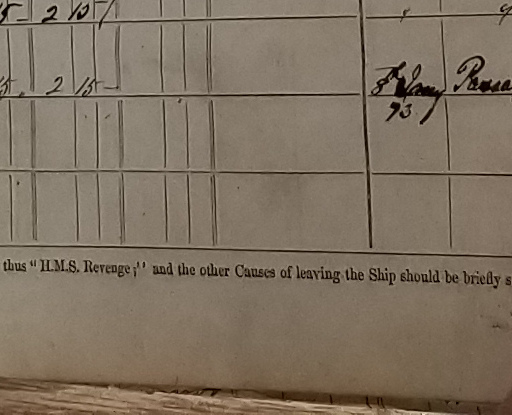 5 - 2 15 -
15 . 2 15 -
73
thus "H.M.S. Revenge;" and the other Causes of leaving the Ship should be briefly s